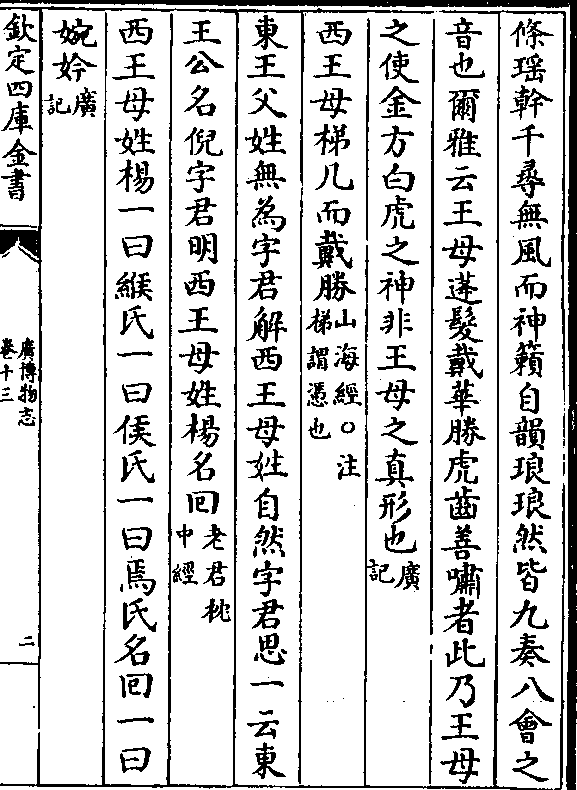 條瑶幹千尋無風而神籟自韻琅琅然皆九奏八會之
音也爾雅云王母蓬髮戴華勝虎齒善嘯者此乃王母
之使金方白虎之神非王母之真形也廣記
西王母梯几而戴勝山海經○注梯謂憑也
東王父姓無為字君解西王母姓自然字君思一云東
王公名倪字君明西王母姓楊名回老君枕中經
西王母姓楊一曰緱氏一曰侯氏一曰焉氏名回一曰
婉妗廣記
欽定四庫全書
廣博物志
卷十三
二